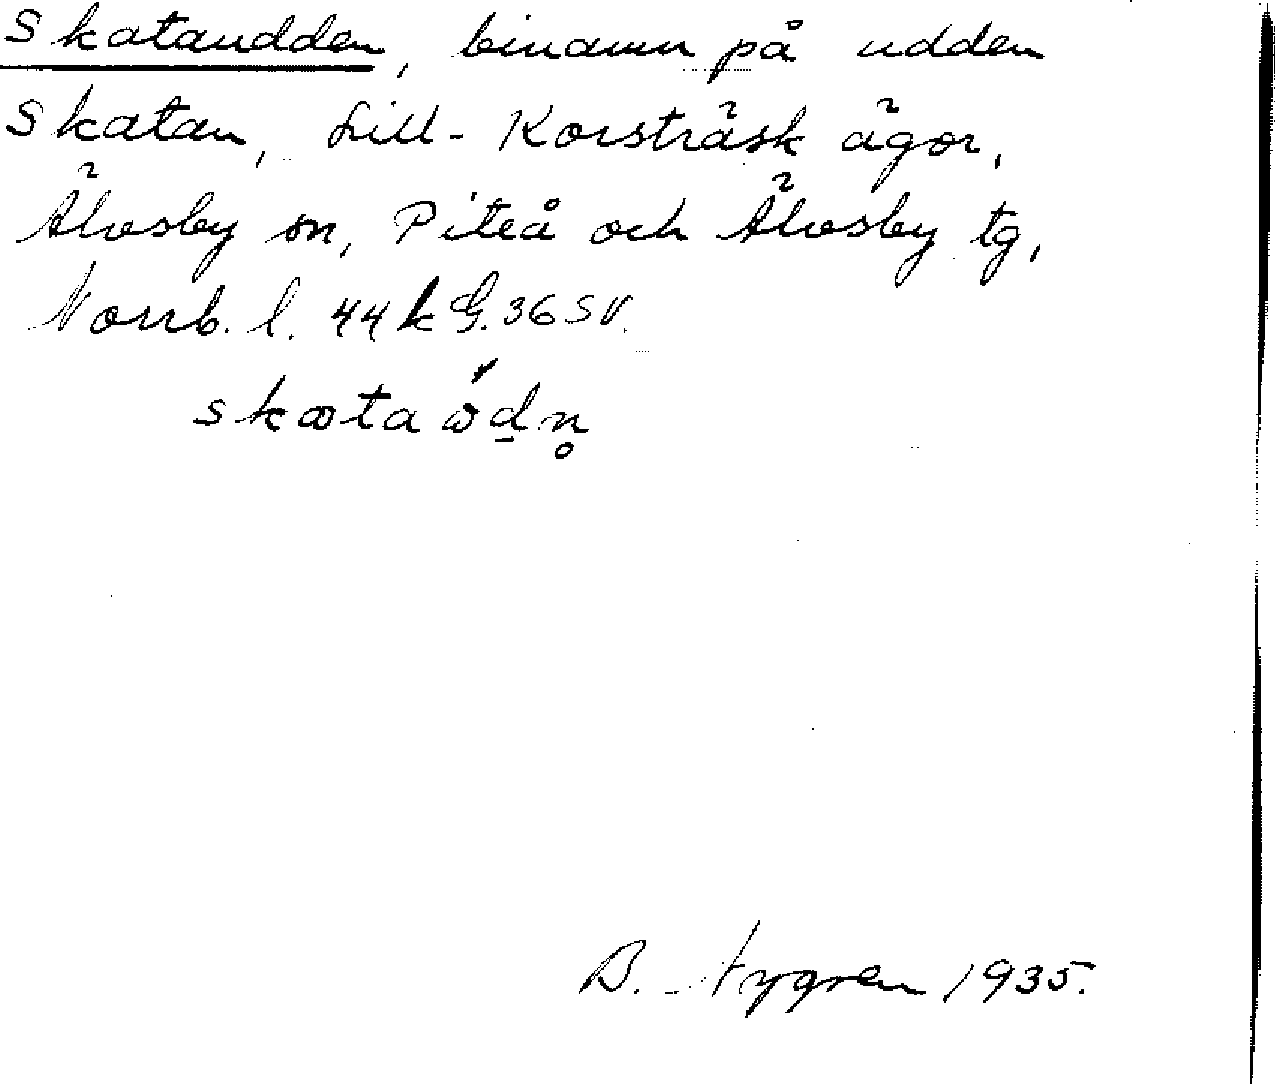 Skataudden, binamn på udden
Skatan, Lill-Korsträsk ägor,
Älvsby sn, Piteå och Älvsby tg,
Norrb. l. 44 k G. 36 SV.
B. Nygren 1935.